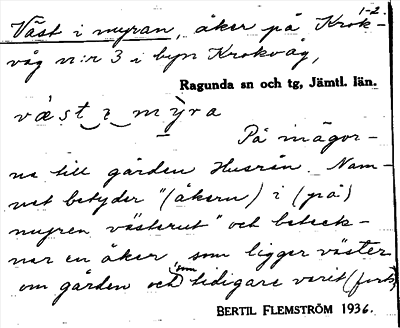 1-2.
Väst i myran, åker på Krok-
våg n:r 3 i byn Krokvåg,
Ragunda sn och tg, Jämtl. län.
väst i mỳra
På inägor-
na till gården Husrån. Nam-
net betyder "(åkern) i (på)
myren västerut" och beteck-
nar en åker som ligger väster
om gården och som tidigare varit (forts)
BERTIL FLEMSTRÖM 1936.